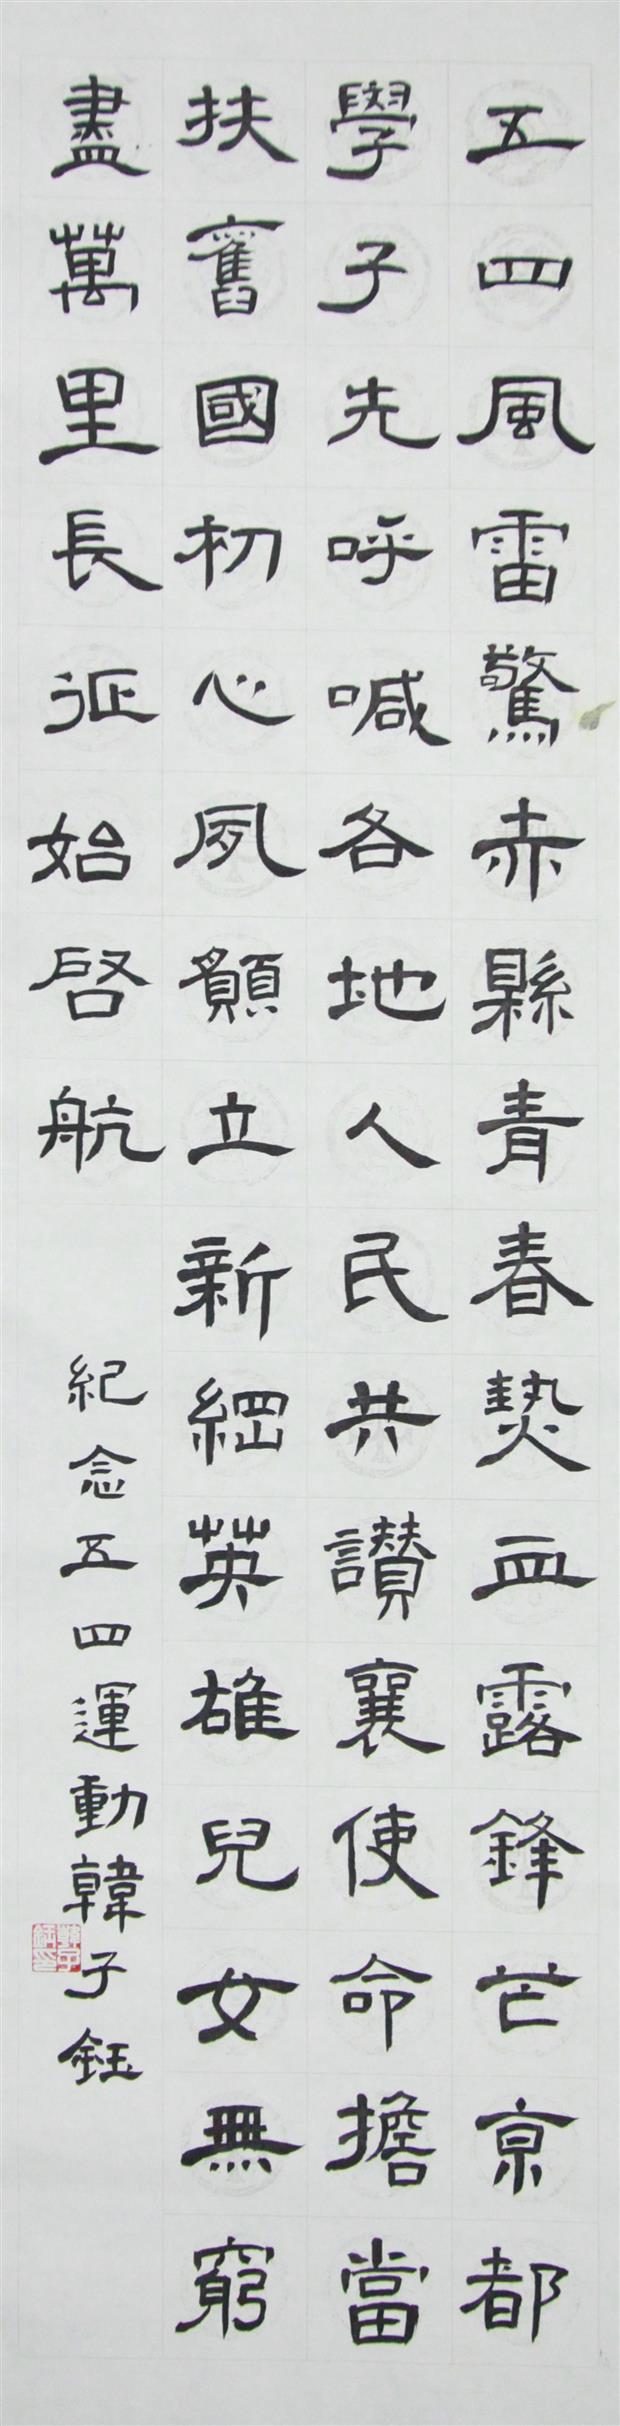 五四風雷驚赤縣青春熱血露鋒芒京都
學子先呼喊各地人民共讚襄使命擔當
扶舊國初心夙願立新綱英雄兒女無窮
盡萬里長征始啓航
紀念五四運動韓子鈺